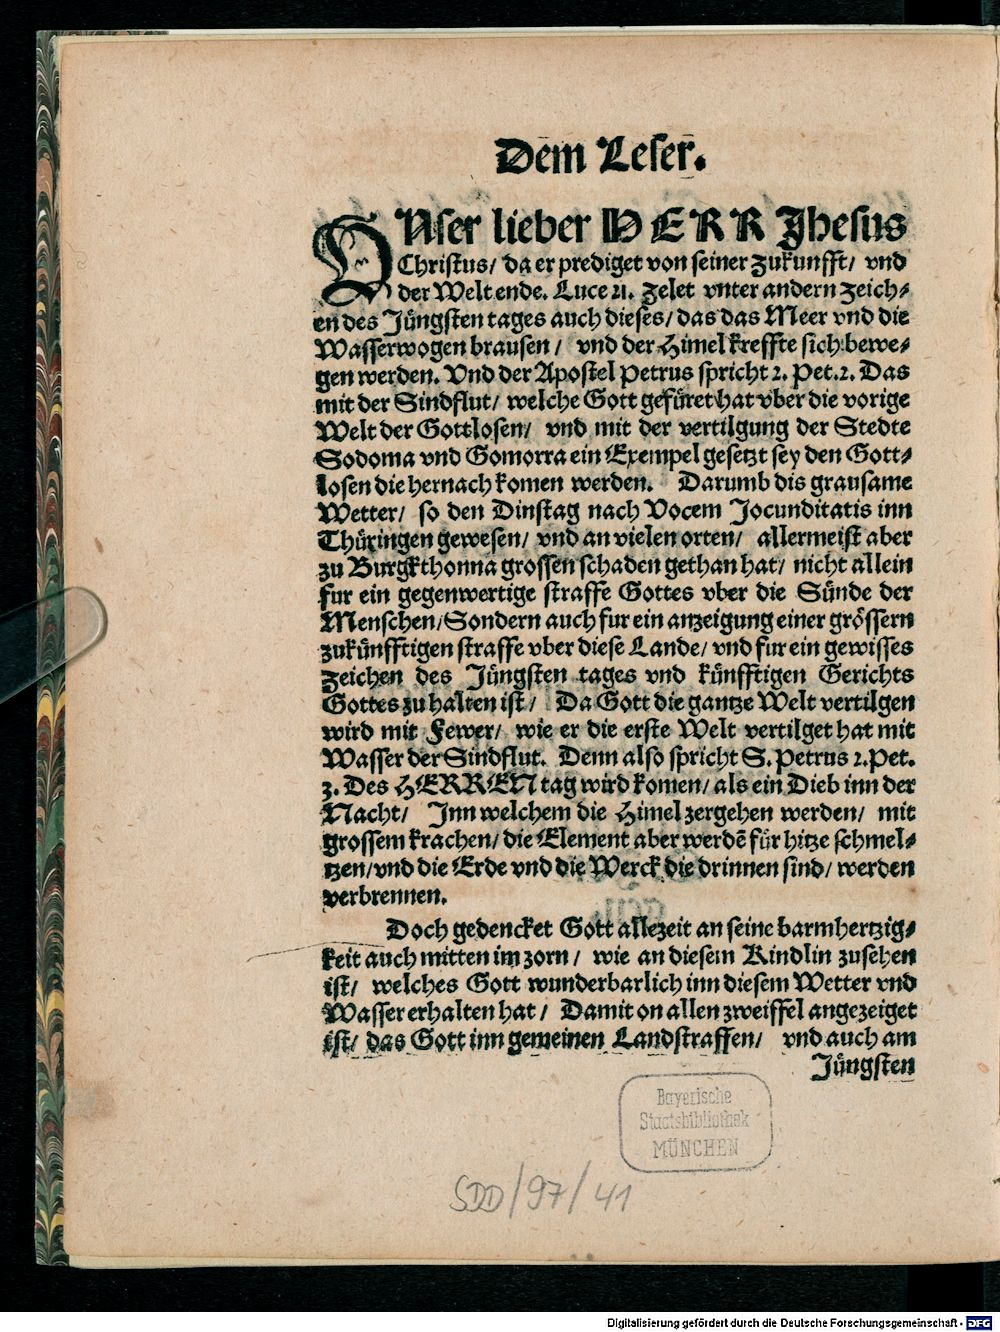 Dem Leser.
VNser lieber HERR Jhesus
Christus/ da er prediget von seiner zukunfft/ vnd
der Welt ende. Luce 21. zelet vnter andern zeich-
en des Jüngsten tages auch dieses/ das das Meer vnd die
Wasserwogen brausen/ vnd der Himel kreffte sich bewe-
gen werden. Vnd der Apostel Petrus spricht 2. Pet. 2. Das
mit der Sindflut/ welche Gott gefüret hat vber die vorige
Welt der Gottlosen/ vnd mit der vertilgung der Stedte
Sodoma vnd Gomorra ein Exempel gesetzt sey den Gott-
losen die hernach komen werden. Darumb dis grausame
Wetter/ so den Dinstag nach Vocem Jocunditatis inn
Thüringen gewesen/ vnd an vielen orten/ allermeist aber
zu Burgkthonna grossen schaden gethan hat/ nicht allein
fur ein gegenwertige straffe Gottes vber die Sünde der
Menschen/ Sondern auch fur ein anzeigung einer grössern
zukünfftigen straffe vber diese Lande/ vnd fur ein gewisses
zeichen des Jüngsten tages vnd künfftigen Gerichts
Gottes zu halten ist/ Da Gott die gantze Welt vertilgen
wird mit Fewer/ wie er die erste Welt vertilget hat mit
Wasser der Sindflut. Denn also spricht S. Petrus 2. Pet.
3. Des HERREN tag wird komen/ als ein Dieb inn der
Nacht/ Inn welchem die Himel zergehen werden/ mit
grossem krachen/ die Element aber werdē für hitze schmel-
tzen/ vnd die Erde vnd die Werck die drinnen sind/ werden
verbrennen.
Doch gedencket Gott allezeit an seine barmhertzig-
keit auch mitten im zorn/ wie an diesem Kindlin zusehen
ist/ welches Gott wunderbarlich inn diesem Wetter vnd
Wasser erhalten hat/ Damit on allen zweiffel angezeiget
ist/ das Gott inn gemeinen Landstraffen/ vnd auch am
Jüngsten
Bayerische
Staatsbibliothek
MÜNCHEN
SDD/97/41
Digitalisierung gefördert durch die Deutsche Forschungsgemeinschaft - DFG